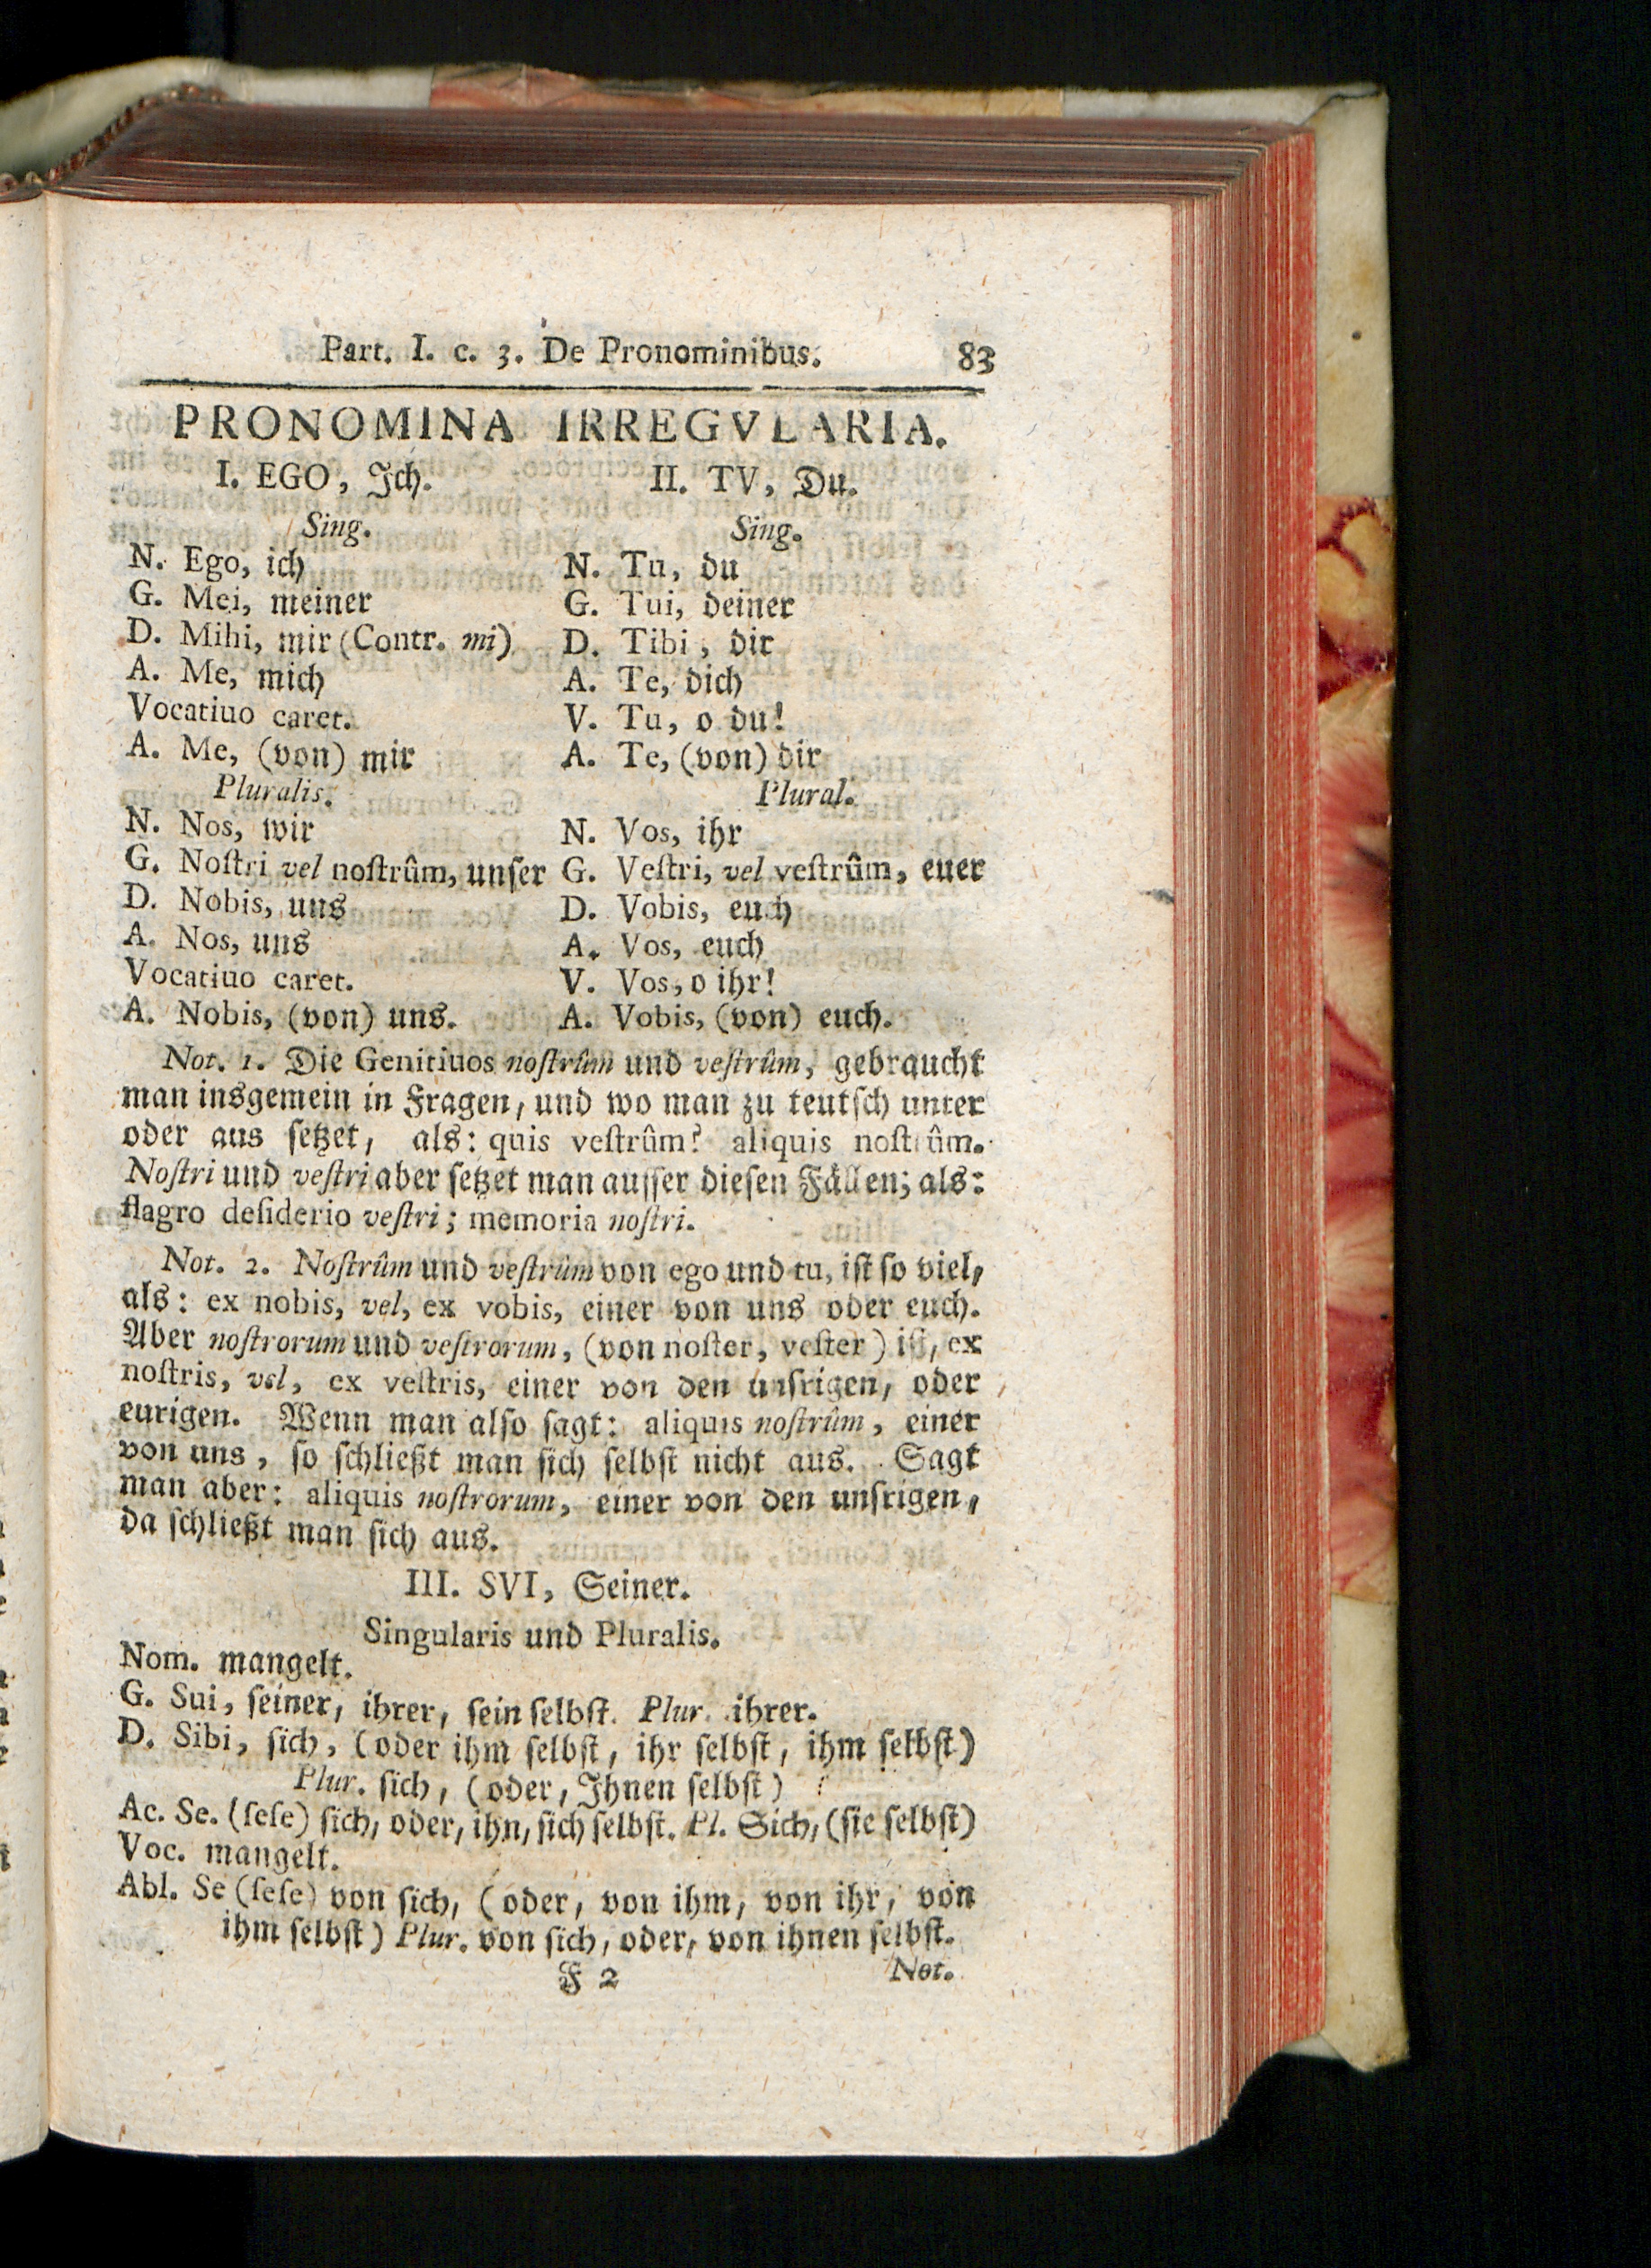 Part. I. c. 3. De Pronominibus. 83
PRONOMINA IRREGVLARIA.
I. EGO, Ich.
Sing.
N. Ego, ich
G. Mei, meiner
D. Mihi, mir (Contr. mi)
A. Me, mich
Vocatiuo caret.
A. Me, (von) mir
Pluralis.
N. Nos, wir
G. Noſtri vel noſtrûm, unſer
D. Nobis, uns
A. Nos, uns
Vocatiuo caret.
A. Nobis, (von) uns.
II. TV, Du.
Sing.
N. Tu, du
G. Tui, deiner
D. Tibi, dir
A. Te, dich
V. Tu, o du!
A. Te, (von) dir
Plural.
N. Vos, ihr
G. Veſtri, vel veſtrûm, euer
D. Vobis, euch
A. Vos, euch
V. Vos, o ihr!
A. Vobis, (von) euch.
Not. 1. Die Genitiuos noſtrûm und veſtrûm, gebraucht
man insgemein in Fragen, und wo man zu teutſch unter
oder aus ſetzet, als: quis veſtrûm? aliquis noſtrûm.
Noſtri und veſtri aber ſetzet man auſſer dieſen Fällen; als:
flagro deſiderio veſtri; memoria noſtri.
Not. 2. Noſtrûm und veſtrûm von ego und tu, iſt ſo viel,
als: ex nobis, vel, ex vobis, einer von uns oder euch.
Aber noſtrorum und veſtrorum, (von noſter, veſter) iſt, ex
noſtris, vel, ex veſtris, einer von den unſrigen, oder
eurigen. Wenn man alſo ſagt: aliquis noſtrûm, einer
von uns, ſo ſchließt man ſich ſelbſt nicht aus. Sagt
man aber: aliquis noſtrorum, einer von den unſrigen,
da ſchließt man ſich aus.
III. SVI, Seiner.
Singularis und Pluralis.
Nom. mangelt.
G. Sui, ſeiner, ihrer, ſein ſelbſt. Plur. ihrer.
D. Sibi, ſich, (oder ihm ſelbſt, ihr ſelbſt, ihm ſelbſt)
Plur. ſich, (oder, Ihnen ſelbſt)
Ac. Se. (ſeſe) ſich, oder, ihn, ſich ſelbſt. Pl. Sich, (ſie ſelbſt)
Voc. mangelt.
Abl. Se (ſeſe) von ſich, (oder, von ihm, von ihr, von
ihm ſelbſt) Plur. von ſich, oder, von ihnen ſelbſt.
F 2 Not.